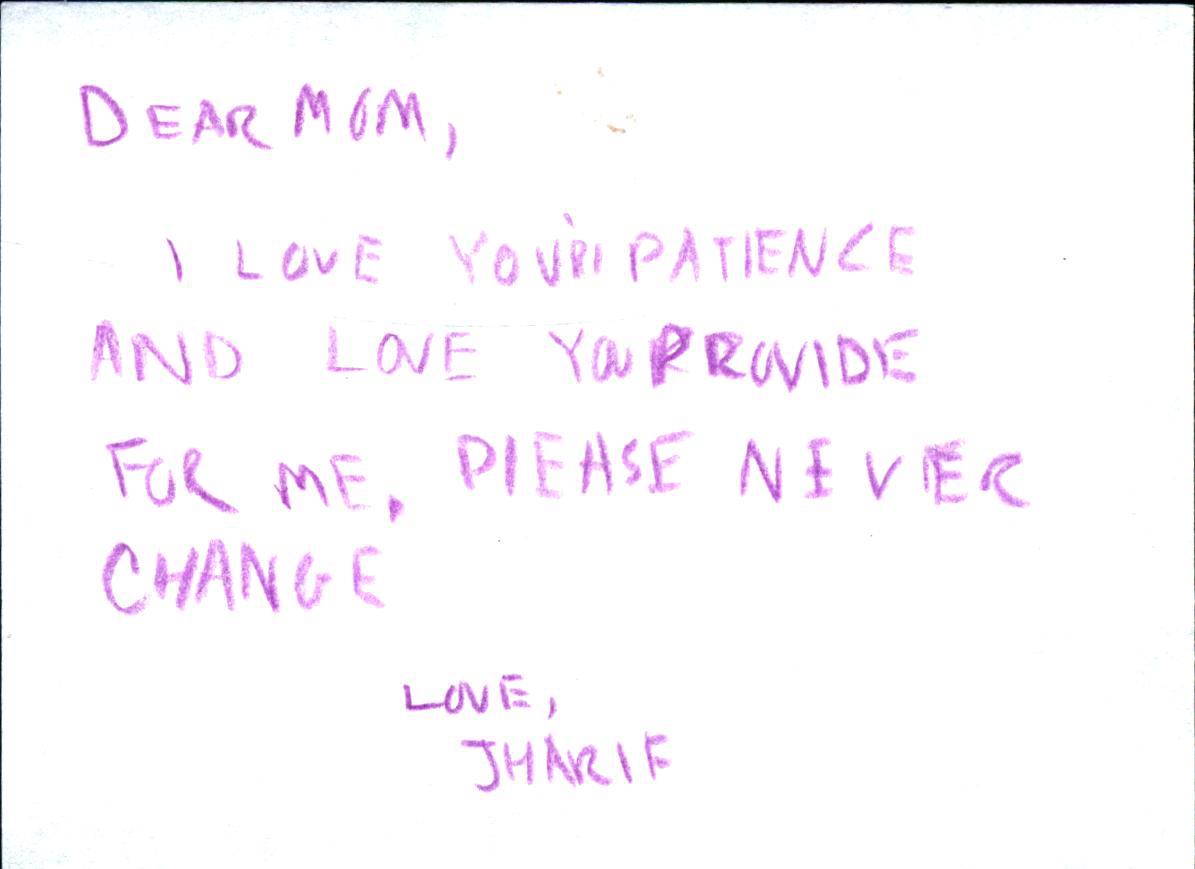 DEAR MOM,
I LOVE YOUR PATIENCE
AND LOVE YOU PROVIDE
FOR ME. PLEASE NEVER
CHANGE
LOVE,
JHARIF